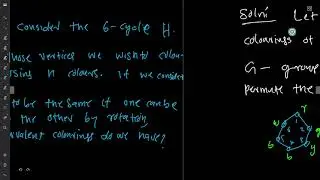 Consider the 6-cycle H.
whose vertices we wish to colour
using n colours. If we consider
to be the same if one can be
the other by rotation
equivalent colourings do we have?
Soln: Let
colourings of
G - group
permute the
r
w
1
6
2
5
3
4
b
b
y